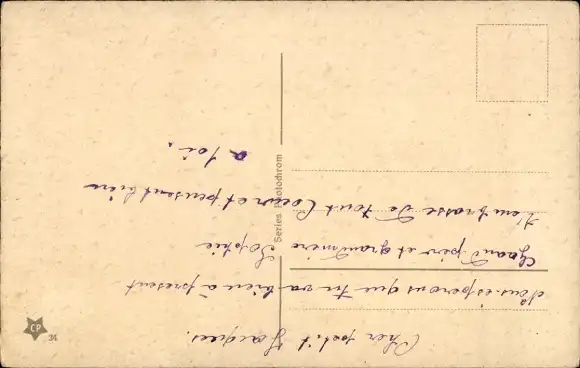 Cher petit Jacques.
Nous espérons que tu va bien à présent
Grand père et grandmère Sophie
t'embrasse de tout Coeur et pensent bien
a toi.
Series Photochrom
CP
34